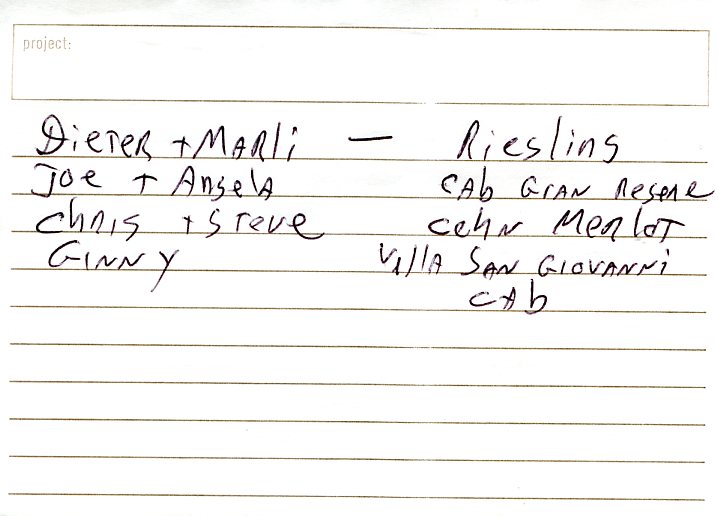 project:
Dieter + Marli — Riesling
Joe + Angela Cab Gran Reserve
Chris + Steve Merlot
Ginny Villa San Giovanni
Cab